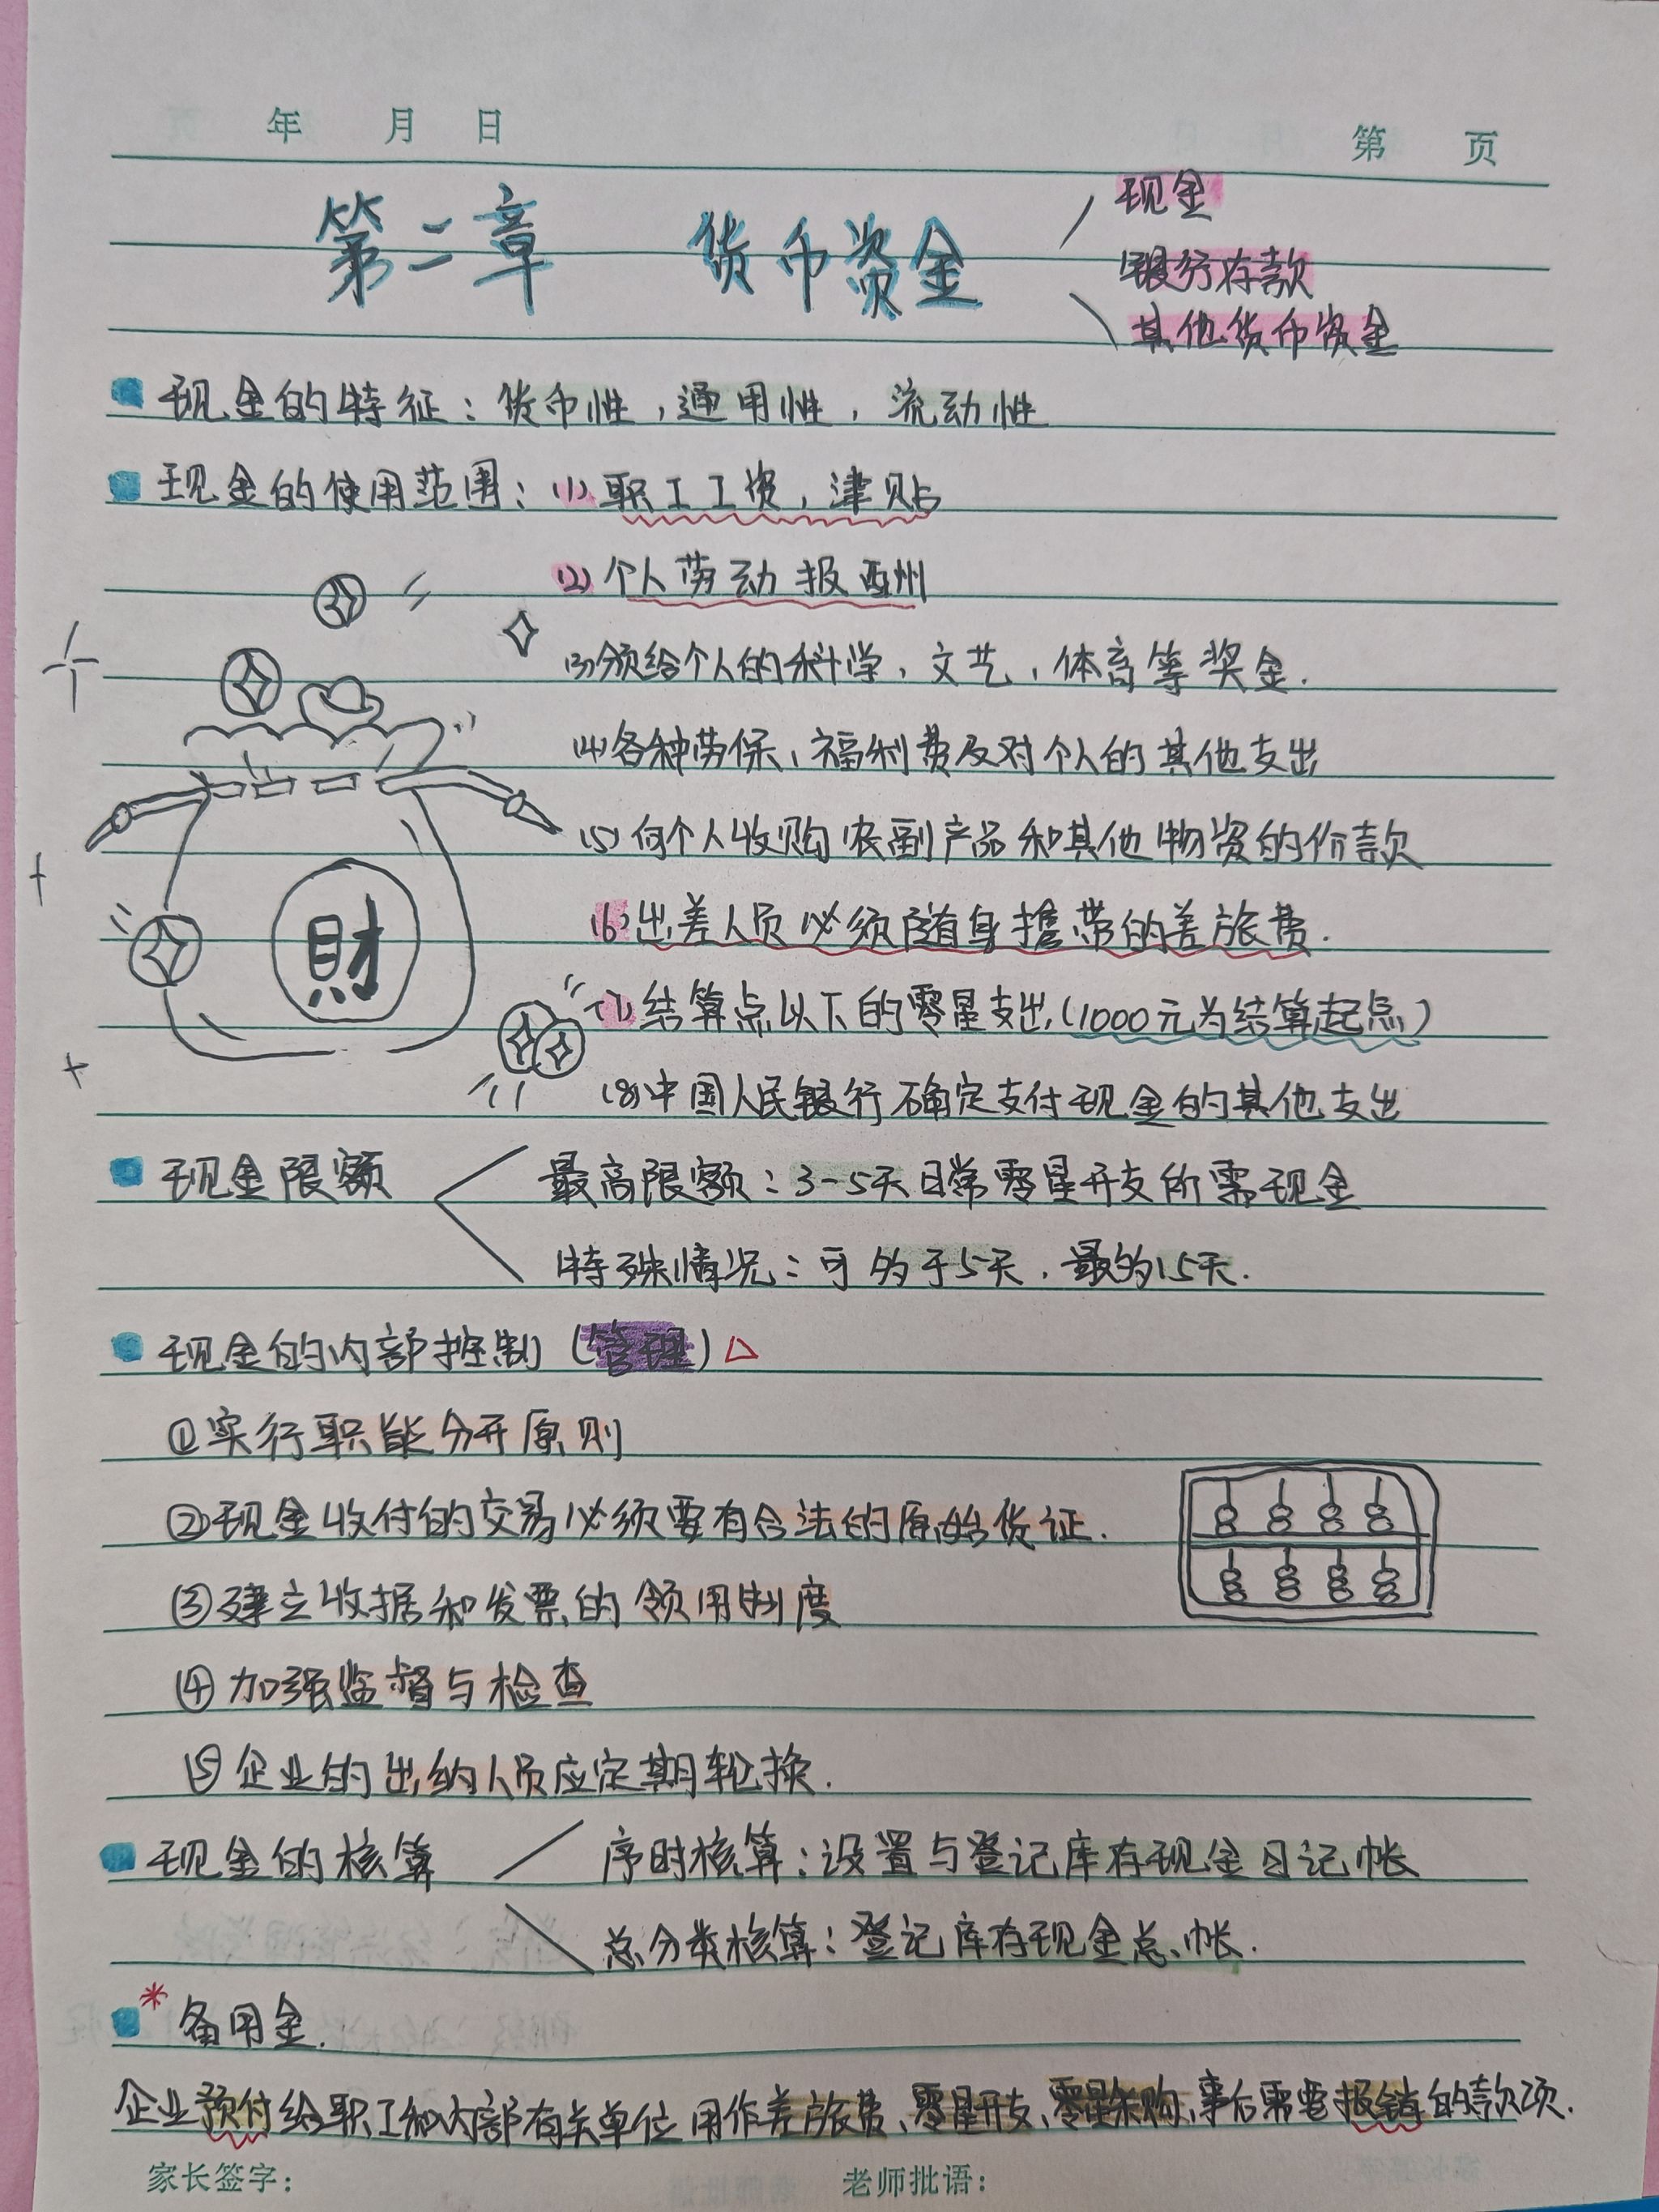 年 月 日 第 页
第二章 货币资金
现金
银行存款
其他货币资金
现金的特征：货币性，通用性，流动性
现金的使用范围：(1)职工工资，津贴
(2)个人劳动报酬
(3)颁给个人的科学、文艺、体育等奖金.
(4)各种劳保、福利费及对个人的其他支出
(5)向个人收购农副产品和其他物资的价款
(6)出差人员必须随身携带的差旅费.
(7)结算点以下的零星支出(1000元为结算起点)
(8)中国人民银行确定支付现金的其他支出
財
现金限额
最高限额：3-5天日常零星开支所需现金
特殊情况：可多于5天.最多15天.
现金的内部控制(管理)△
①实行职能分开原则
②现金收付的交易必须要有合法的原始凭证.
③建立收据和发票的领用制度
④加强监督与检查
⑤企业的出纳人员应定期轮换.
现金的核算
序时核算：设置与登记库存现金日记帐
总分类核算：登记库存现金总帐.
*备用金.
企业预付给职工和内部有关单位用作差旅费、零星开支、零星采购,事后需要报销的款项.
家长签字： 老师批语：